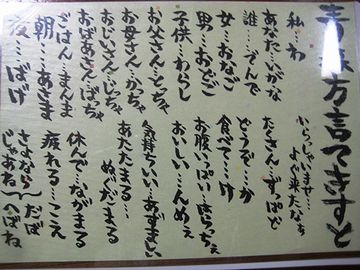 青森方言てきすと
いらっしゃいませ…よぐ来たなぁ
私…わ
あなた…な
誰…でんで
女…おなご
男…おどご
子供…わらし
お父さん…とっちゃ
お母さん…かっちゃ
おじいさん…じっちゃ
おばあさん…ばっちゃ
ごはん…まんま
朝…あさま
夜…ばげ
たくさん…ずっぱど
どうぞ…か
食べて…け
お腹いっぱい…
おいしい…んめぇ
気持ちいい…あずましい
あたたまる…ぬぐだまる
休んで…ながまる
疲れる…こえ
さよなら…だば
じゃあね…へばね